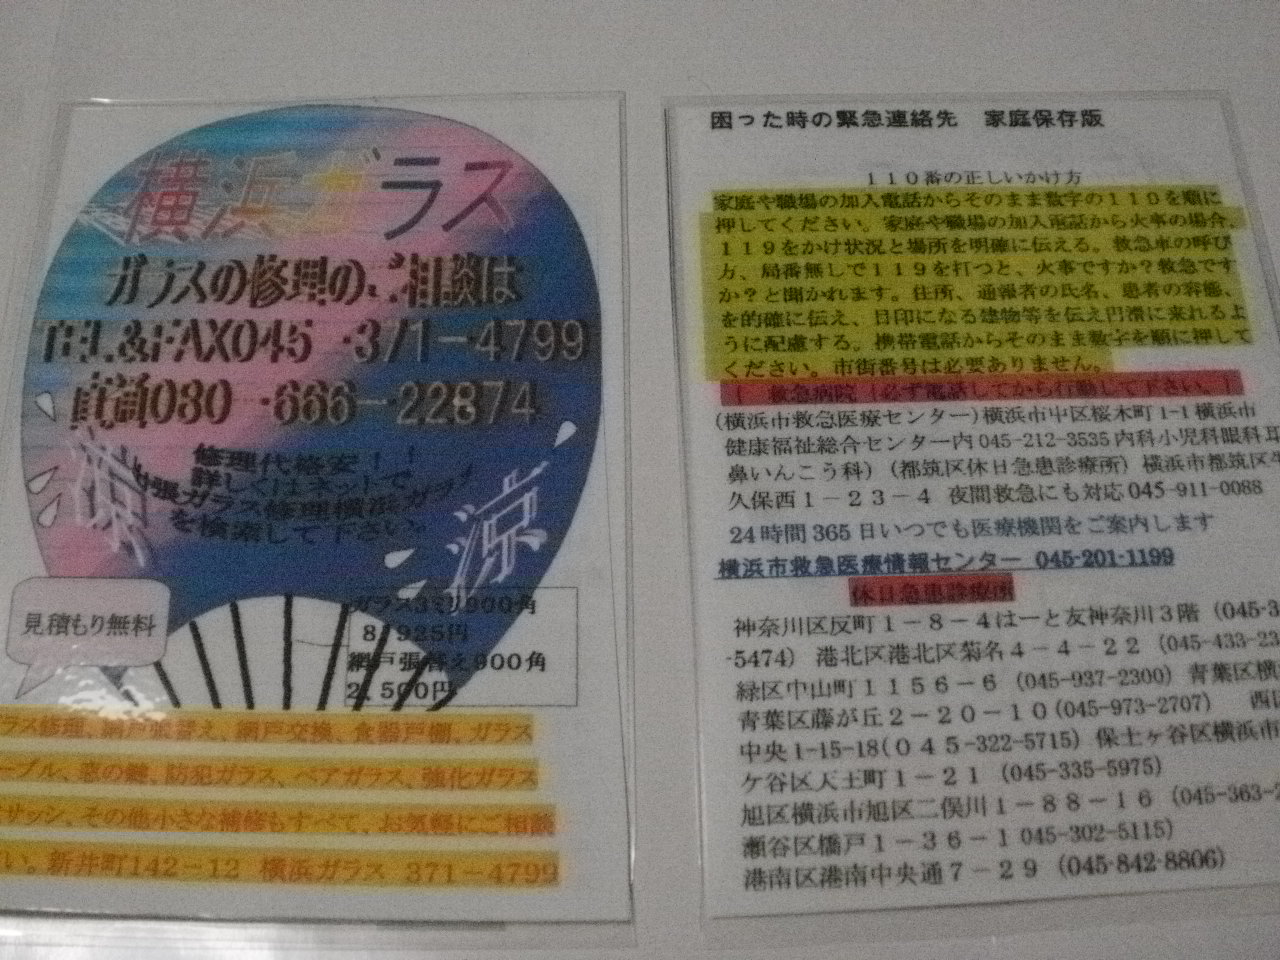 横浜ガラス
ガラスの修理のご相談は
TEL&FAX045-371-4799
直通080-666-22874
修理代格安!!
詳しくはネットで
出張ガラス修理横浜ガラス
を検索して下さい。
涼
見積もり無料
ガラス3ミリ900角
8,925円
網戸張替え900角
2,500円
ラス修理、戸車取替え、網戸交換、食器戸棚、ガラス
ーブル、窓の鍵、防犯ガラス、ペアガラス、強化ガラス
サッシ、その他小さな補修もすべて、お気軽にご相談
い。新井町142-12 横浜ガラス 371 4799
困った時の緊急連絡先 家庭保存版
110番の正しいかけ方
家庭や職場の加入電話からそのまま数字の110を順に
押してください。家庭や職場の加入電話から火事の場合、
119をかけ状況と場所を明確に伝える。救急車の呼び
方、局番無しで119を打つと、火事ですか?救急です
か?と聞かれます。住所、通報者の氏名、患者の容態、
を的確に伝え、目印になる建物等を伝え円滑に来れるよ
うに配慮する。携帯電話からそのまま数字を順に押して
ください。市街番号は必要ありません。
「 救急病院 「必ず電話してから行動して下さい。」
(横浜市救急医療センター)横浜市中区桜木町1-1横浜市
健康福祉総合センター内045-212-3535内科小児科眼科耳
鼻いんこう科) (都筑区休日急患診療所) 横浜市都筑区牛
久保西1-23-4 夜間救急にも対応045-911-0088
24時間365日いつでも医療機関をご案内します
横浜市救急医療情報センター 045-201-1199
休日急患診療所
神奈川区反町1-8-4はーと友神奈川3階 (045-3
-5474) 港北区港北区菊名4-4-22 (045-433-23
緑区中山町1156-6 (045-937-2300) 青葉区横
青葉区藤が丘2-20-10(045-973-2707) 西
中央1-15-18(045-322-5715) 保土ヶ谷区横浜市
ケ谷区天王町1-21 (045-335-5975)
旭区横浜市旭区二俣川1-88-16 (045-363-2
瀬谷区橋戸1-36-1 045-302-5115)
港南区港南中央通7-29 (045-842-8806)